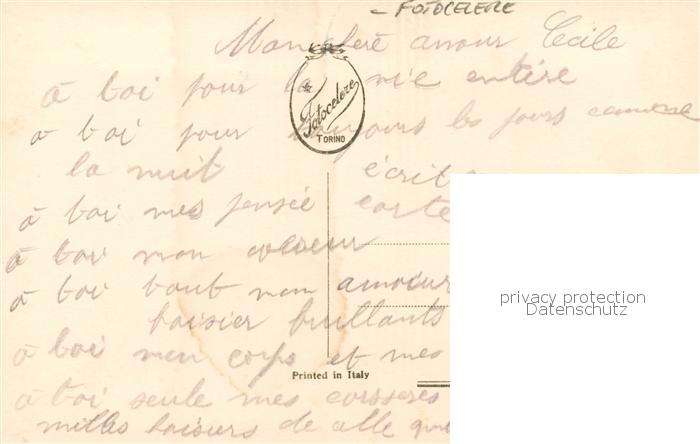 - FOTOCELERE
Mon cheré amour Cecile
a toi pour la vie entire
a toi pour toujours les jours comme
la nuit écrit
a toi mes pensée carte
a toi mon coleur
a toi tout mon amour
baisier brullants
a toi mon corps et mes
a toi seule mes caresses
milles baisers de
Fotocelere
TORINO
Printed in Italy
privacy protection
Datenschutz